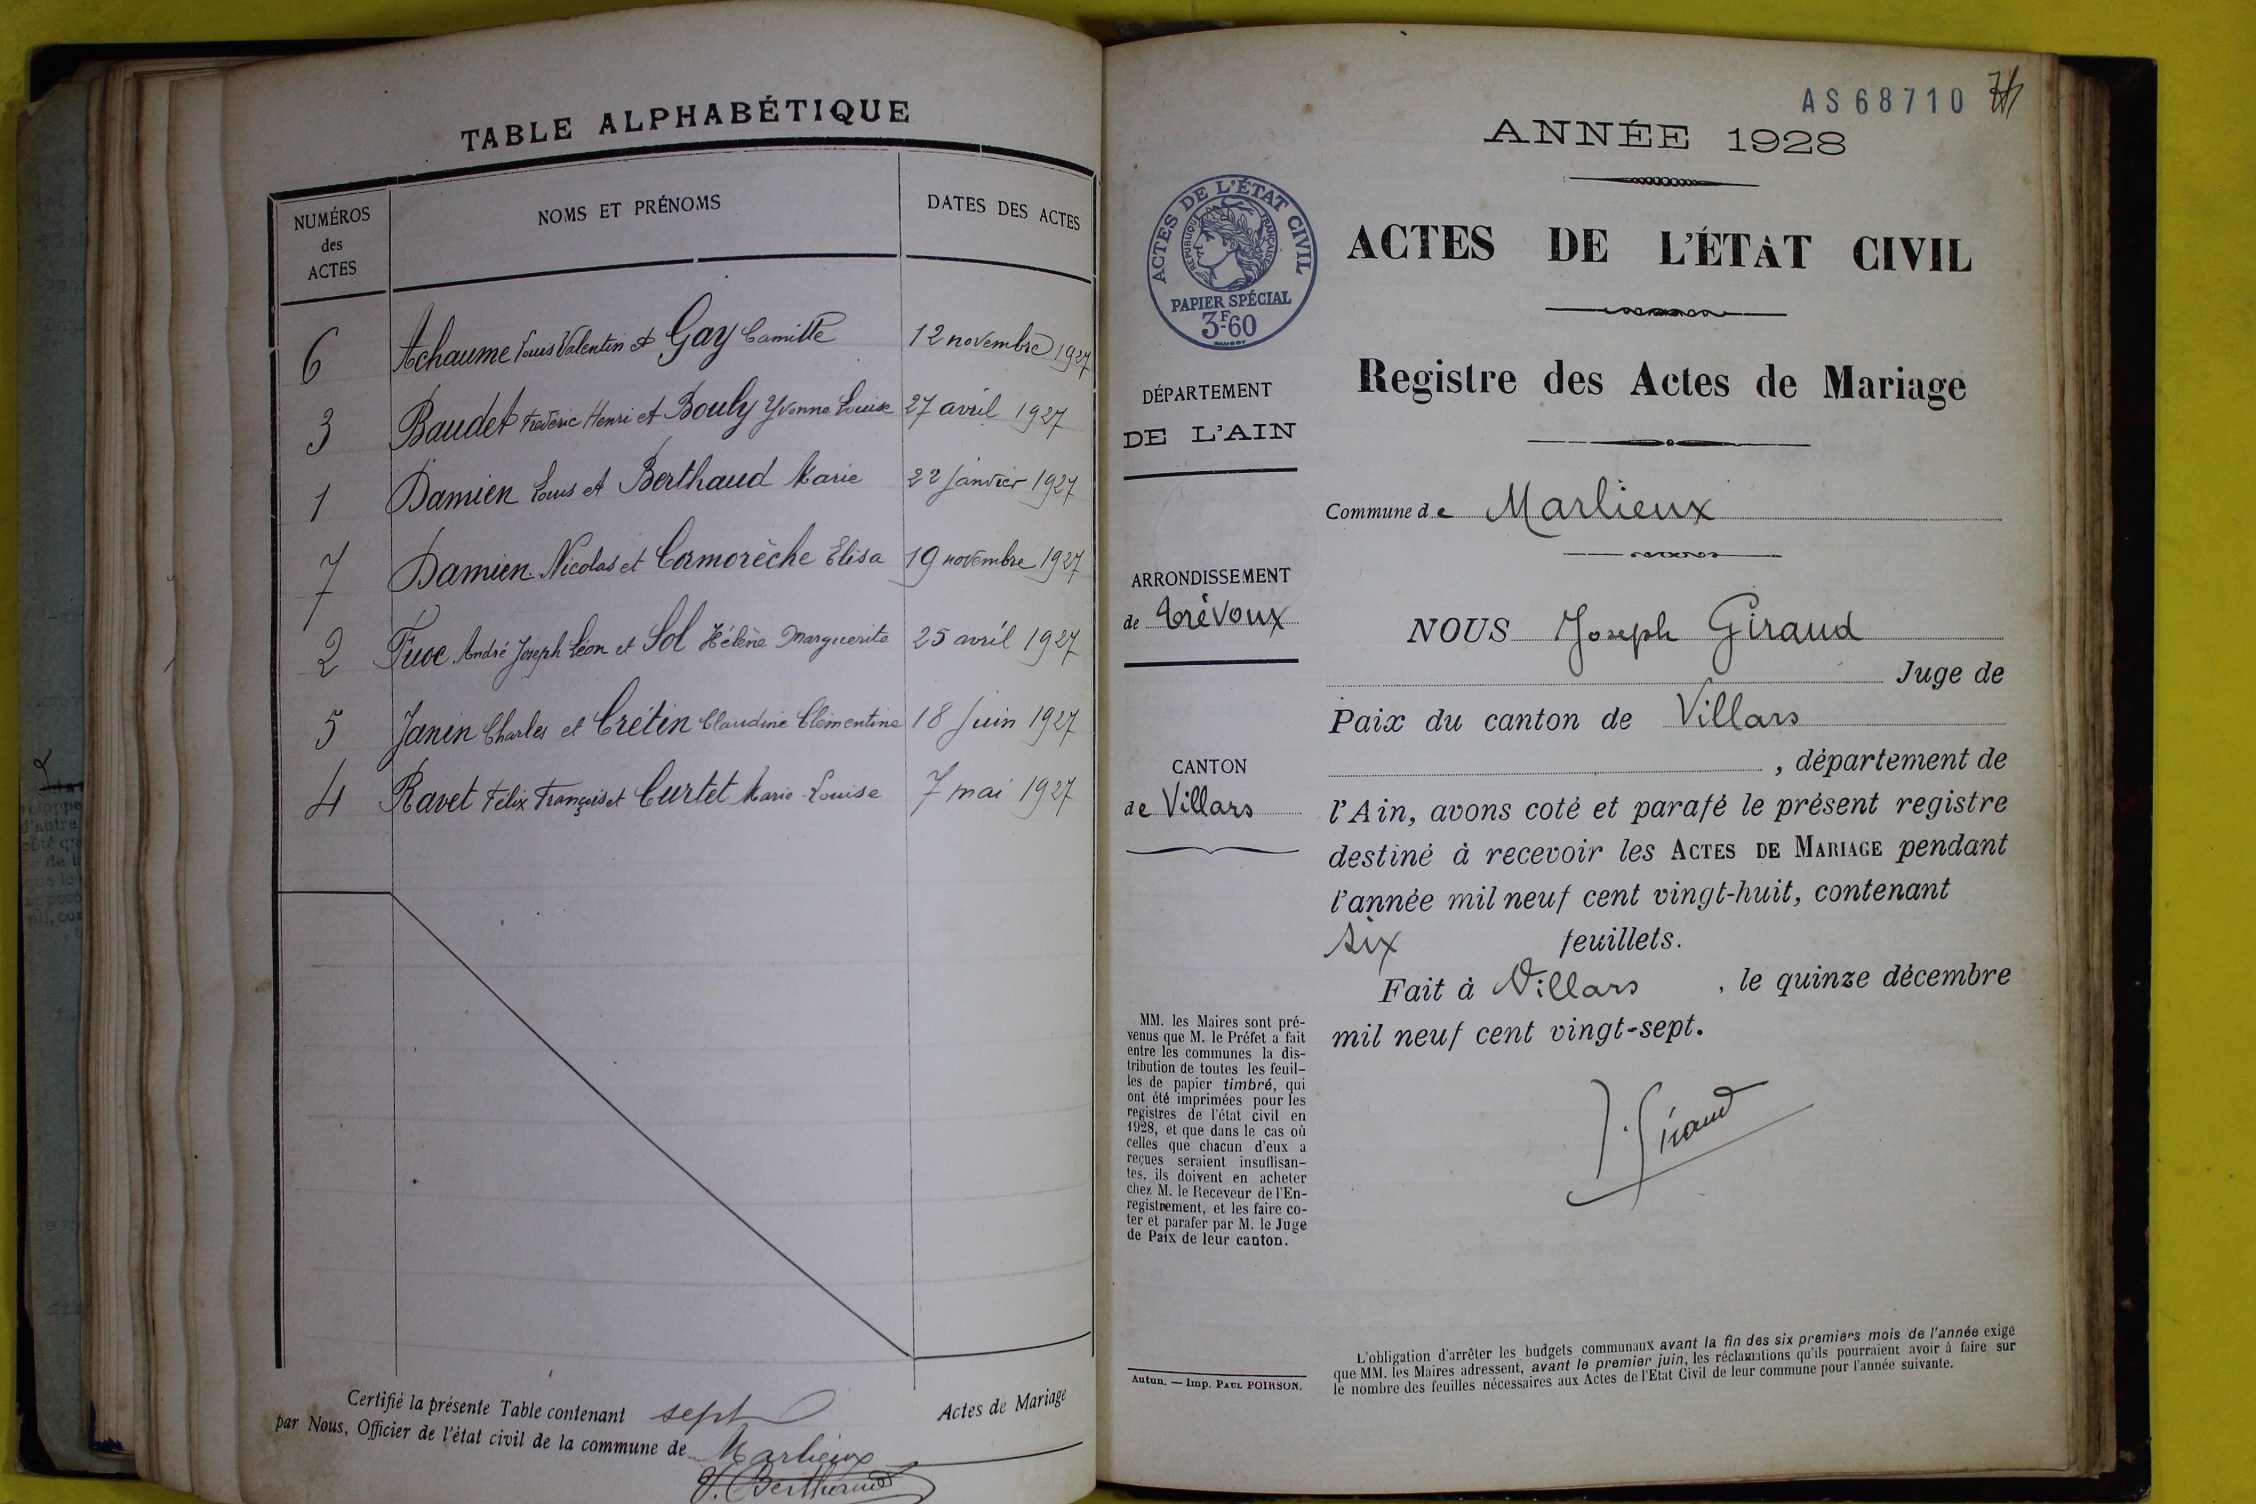 TABLE ALPHABÉTIQUE
NUMÉROS des ACTES
NOMS ET PRÉNOMS
DATES DES ACTES
6 Achaume Louis Valentin et Gay Camille 12 novembre 1927
3 Baudet Frédéric Henri et Bouly Yvonne Louise 27 avril 1927
1 Damien Louis et Berthaud Marie 22 janvier 1927
7 Damien Nicolas et Cormorèche Elisa 19 novembre 1927
2 André Joseph Léon et Sol Hélène Marguerite 25 avril 1927
5 Janin Charles et Crétin Claudine Clémentine 18 juin 1927
4 Ravet Félix François et Curtet Marie-Louise 7 mai 1927
Certifié la présente Table contenant sept Actes de Mariage
par Nous, Officier de l'état civil de la commune de Marlieux
AS68710
ANNÉE 1928
ACTES DE L'ÉTAT CIVIL
RÉPUBLIQUE FRANÇAISE
PAPIER SPÉCIAL
3F60
ACTES DE L'ÉTAT CIVIL
Registre des Actes de Mariage
DÉPARTEMENT
DE L'AIN
Commune de Marlieux
ARRONDISSEMENT
de Trévoux
CANTON
de Villars
NOUS Joseph Giraud
Juge de
Paix du canton de Villars
, département de
l'Ain, avons coté et parafé le présent registre
destiné à recevoir les ACTES DE MARIAGE pendant
l'année mil neuf cent vingt-huit, contenant
six feuillets.
Fait à Villars, le quinze décembre
mil neuf cent vingt-sept.
J. Giraud
MM. les Maires sont pré-
venus que M. le Préfet a fait
entre les communes la dis-
tribution de toutes les feuil-
les de papier timbré, qui
ont été imprimées pour les
registres de l'état civil en
1928, et que dans le cas où
celles que chacun d'eux a
reçues seraient insuffisan-
tes, ils doivent en acheter
chez M. le Receveur de l'En-
registrement, et les faire co-
ter et parafer par M. le Juge
de Paix de leur canton.
Autun. — Imp. PAUL POIRSON.
L'obligation d'arrêter les budgets communaux avant la fin des six premiers mois de l'année exige
que MM. les Maires adressent, avant le premier juin, les réclamations qu'ils pourraient avoir à faire sur
le nombre des feuilles nécessaires aux Actes de l'Etat Civil de leur commune pour l'année suivante.